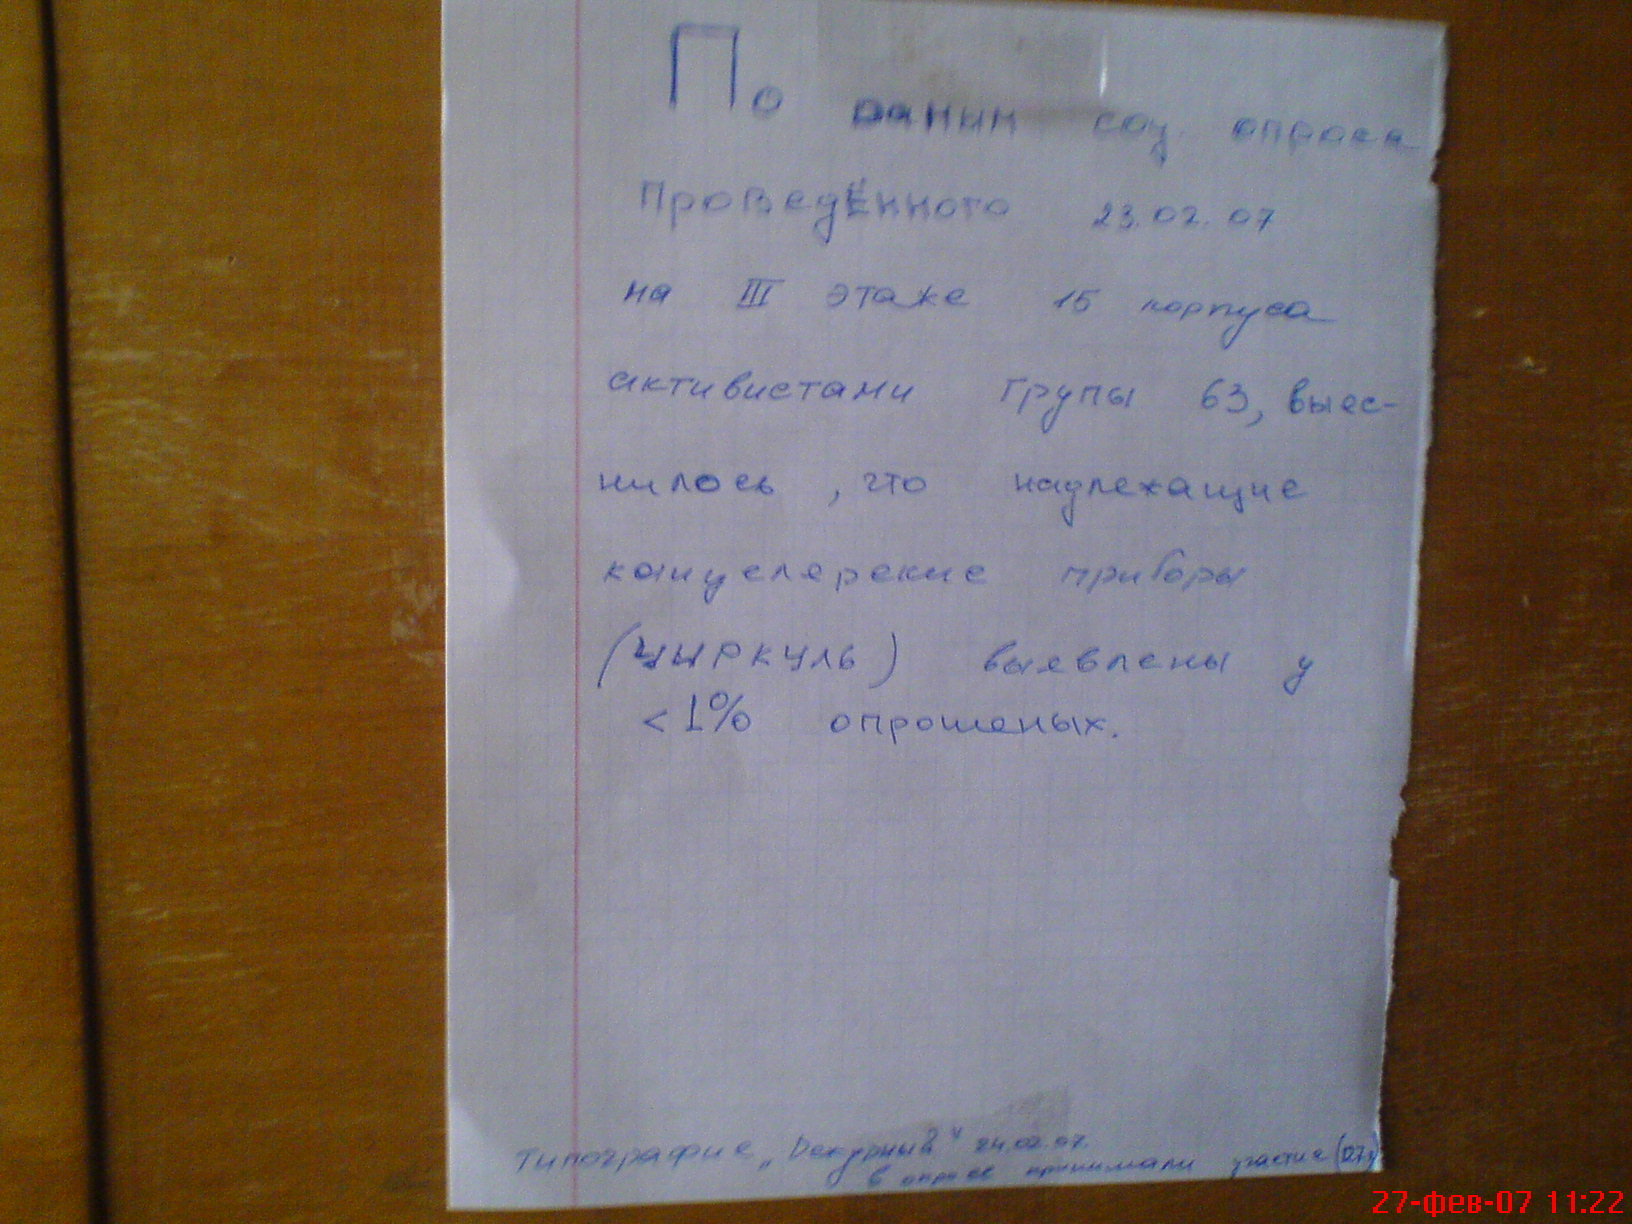 По даным соц. опроса
Проведённого 23.02.07
на III этаже 15 корпуса
активистами групы 63, выес-
нилось , что надлежащие
концелярские приборы
(циркуль) выявлены у
<1% опрошеных.
типография „Дежурный" 24.02.07.
в опросе принимали участие
27-фев-07 11:22